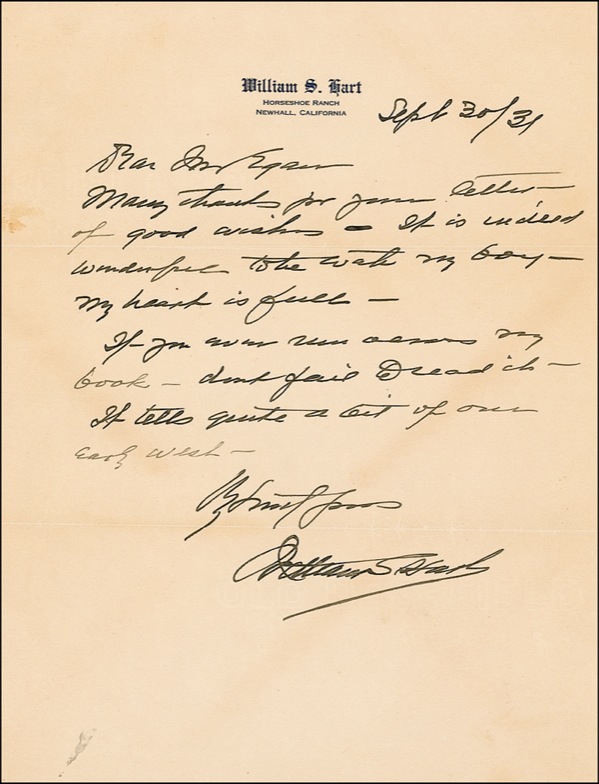 William S. Hart
HORSESHOE RANCH
NEWHALL, CALIFORNIA
Sept 30/31
Dear Mr Egan
Many thanks for your letter –
of good wishes – It is indeed
wonderful to be with my boy –
my heart is full –
If you ever run across my
book – dont fail to read it –
It tells quite a bit of our
early west –
William S Hart